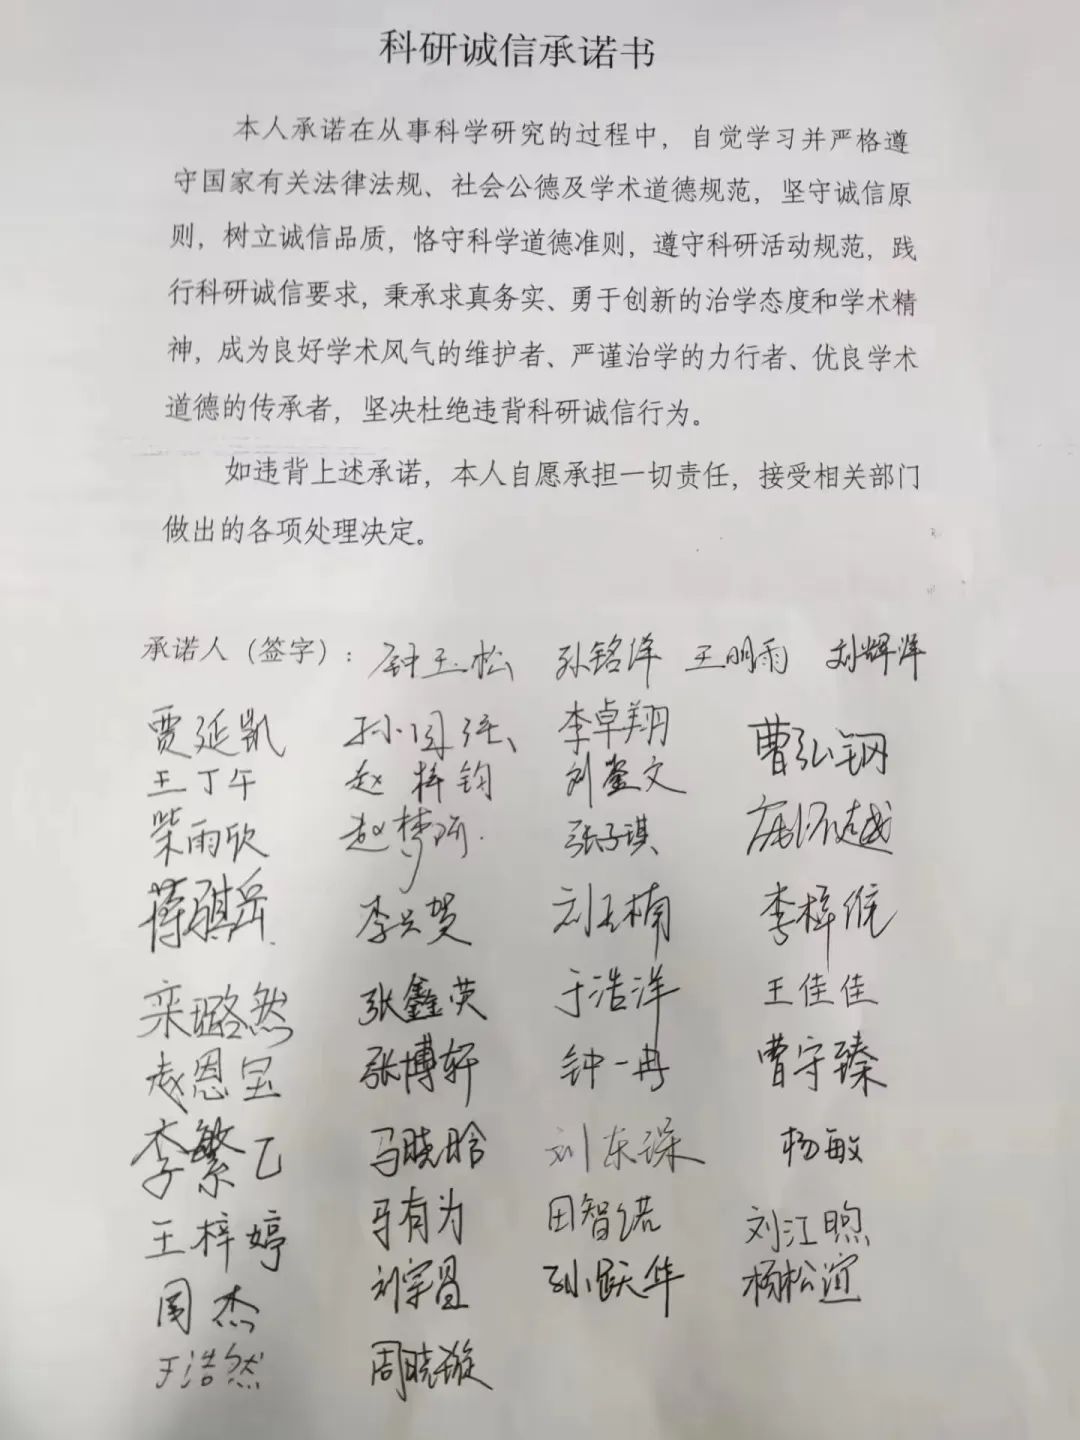 科研诚信承诺书
本人承诺在从事科学研究的过程中，自觉学习并严格遵
守国家有关法律法规、社会公德及学术道德规范，坚守诚信原
则，树立诚信品质，恪守科学道德准则，遵守科研活动规范，践
行科研诚信要求，秉承求真务实、勇于创新的治学态度和学术精
神，成为良好学术风气的维护者、严谨治学的力行者、优良学术
道德的传承者，坚决杜绝违背科研诚信行为。
如违背上述承诺，本人自愿承担一切责任，接受相关部门
做出的各项处理决定。
承诺人（签字）：钟玉松 孙铭泽 王明雨 刘辉洋
贾延凯 李卓翔 曹弘钢
王丁午 赵梓钧 刘莹文
柴雨欣 赵梦 张子琪
蒋骐岳 李兴贺 刘玉楠 李梓
栾璐然 张鑫荧 于浩洋 王佳佳
张博轩 钟一冉 曹守臻
李繁 马晓晗 刘东琛 杨敏
王梓婷 马有为 田智诺 刘江煦
周杰 刘宗昌 孙跃华 杨松谊
于浩然 周晓璇